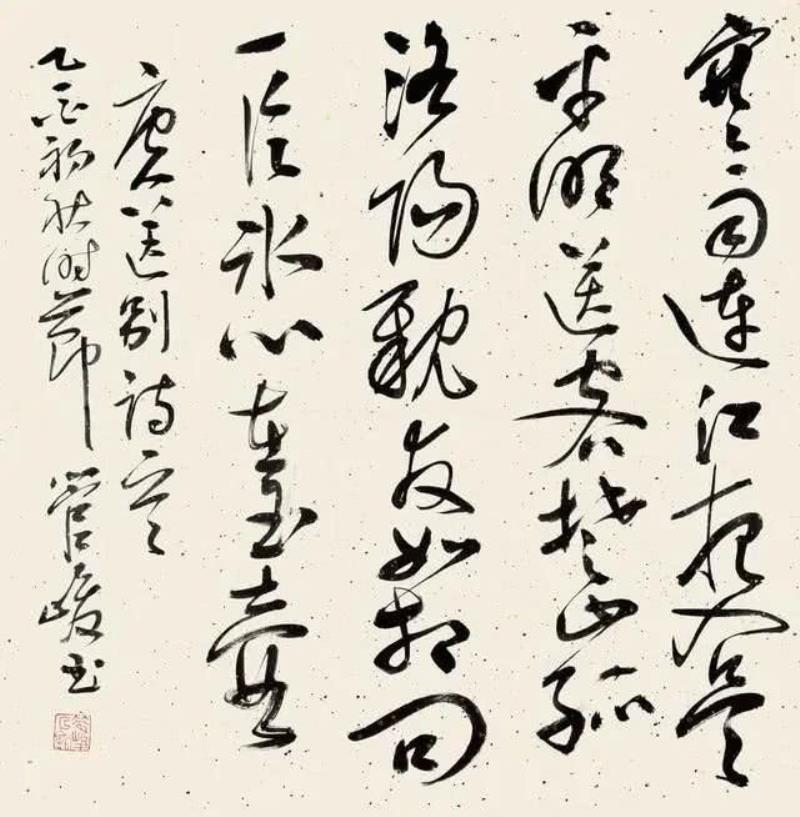 寒雨連江夜入吳
平明送客楚山孤
洛陽親友如相問
一片冰心在玉壺
唐人送別詩一首
乙酉初秋時節 管峻书